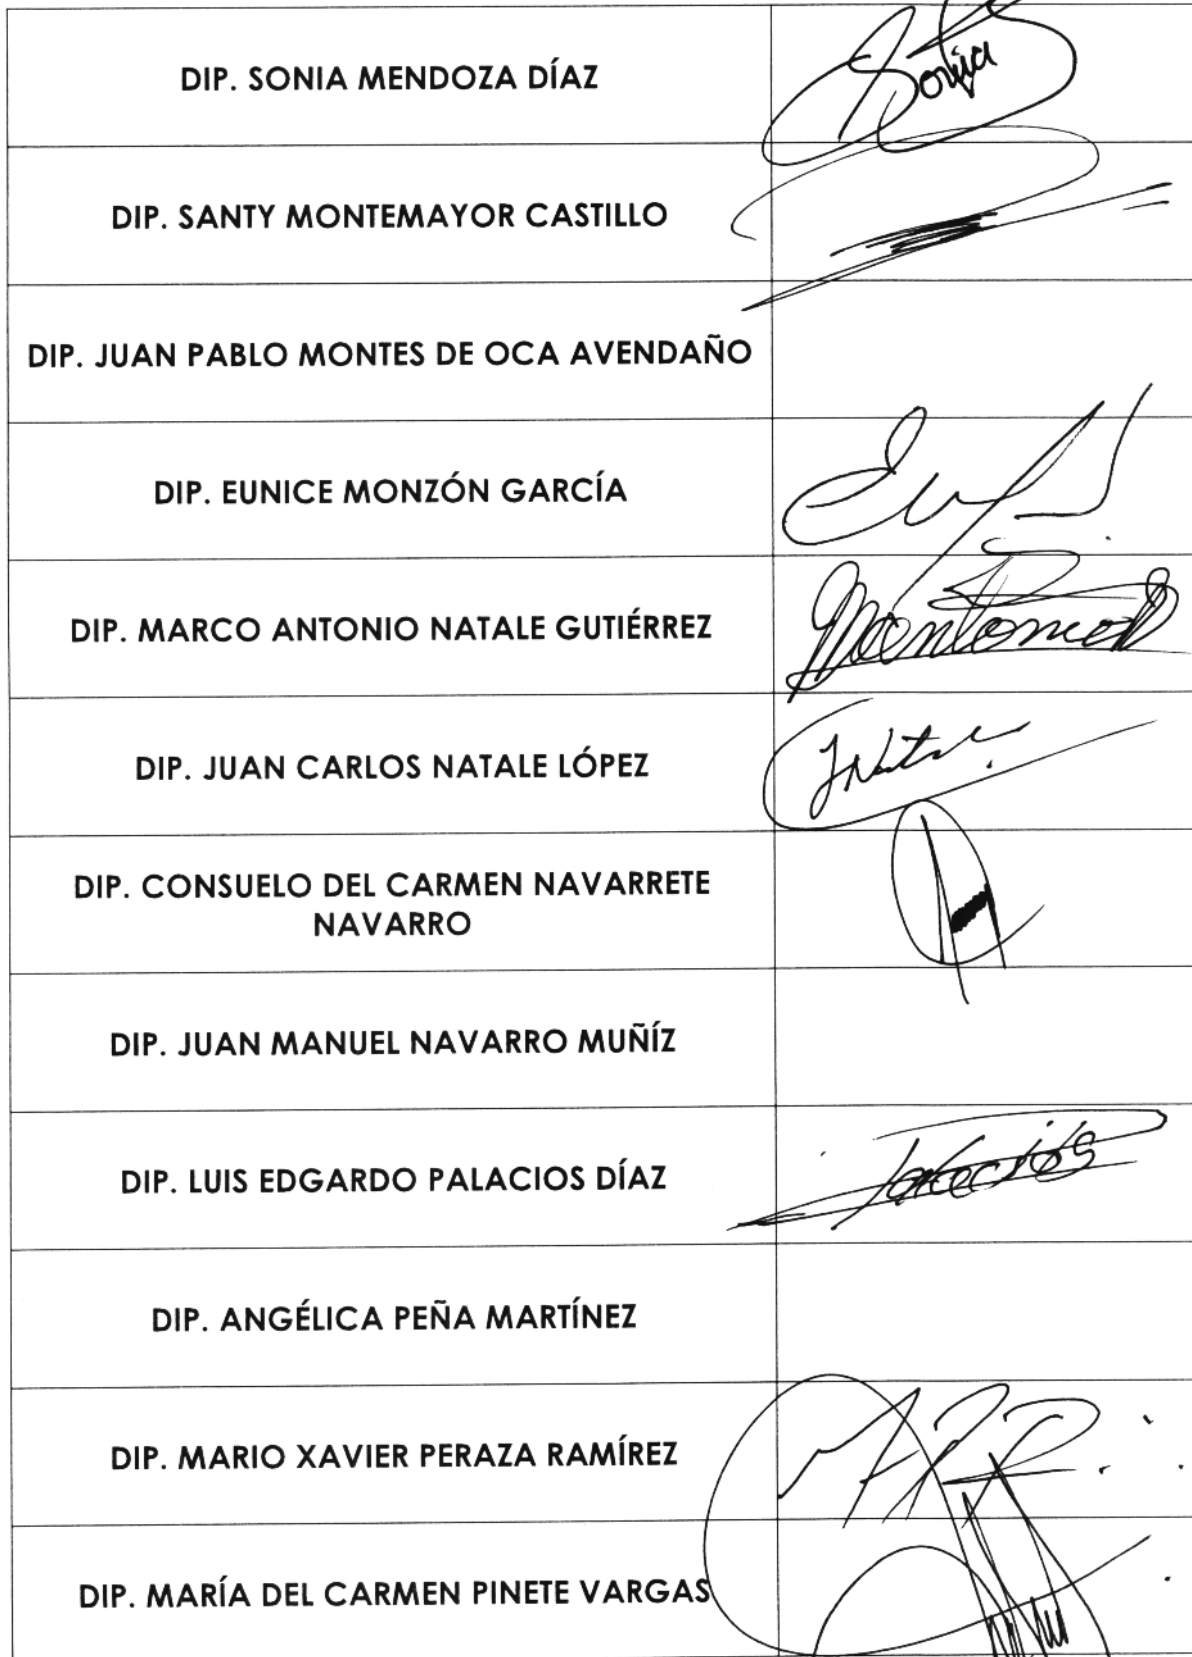 DIP. SONIA MENDOZA DÍAZ
Sonia
DIP. SANTY MONTEMAYOR CASTILLO
DIP. JUAN PABLO MONTES DE OCA AVENDAÑO
DIP. EUNICE MONZÓN GARCÍA
DIP. MARCO ANTONIO NATALE GUTIÉRREZ
DIP. JUAN CARLOS NATALE LÓPEZ
DIP. CONSUELO DEL CARMEN NAVARRETE
NAVARRO
DIP. JUAN MANUEL NAVARRO MUÑÍZ
DIP. LUIS EDGARDO PALACIOS DÍAZ
Palacios
DIP. ANGÉLICA PEÑA MARTÍNEZ
DIP. MARIO XAVIER PERAZA RAMÍREZ
DIP. MARÍA DEL CARMEN PINETE VARGAS